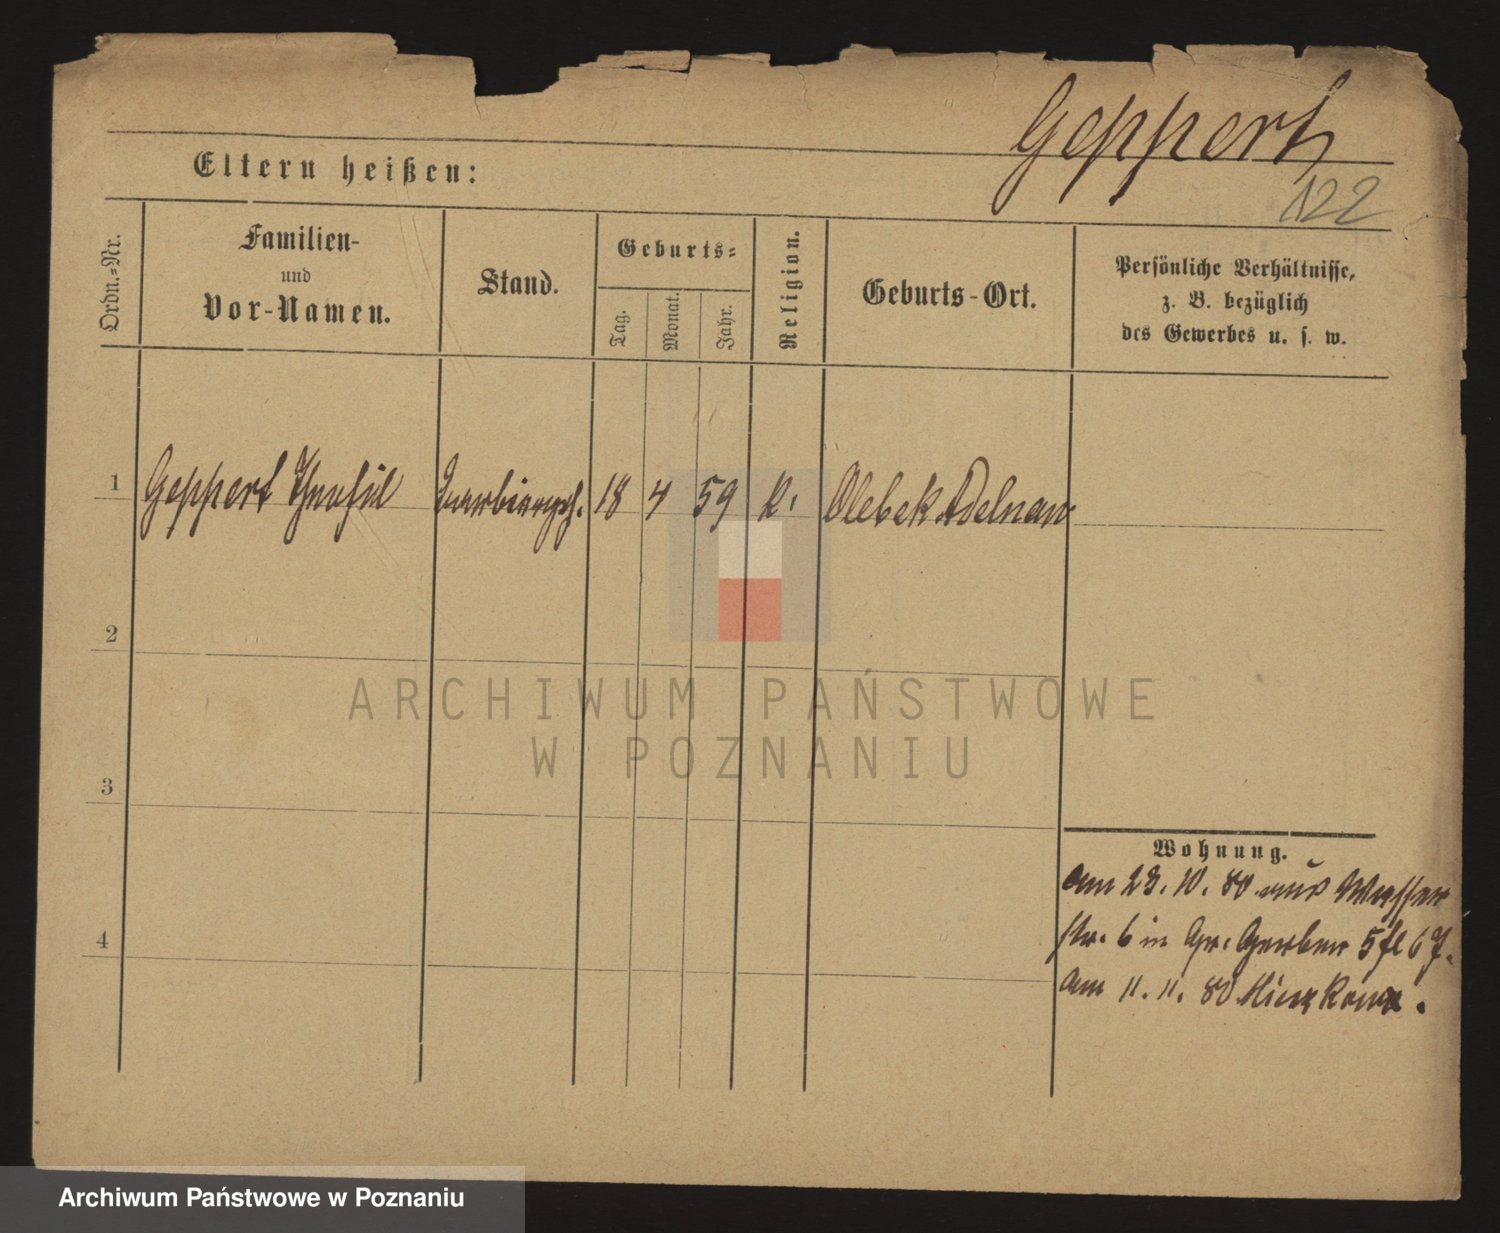 Geppert
122
Eltern heißen:
Ordn.=Nr.
Familien-
und
Vor-Namen.
Stand.
Geburts=
Tag.
Monat.
Jahr.
Religion.
Geburts-Ort.
Persönliche Verhältnisse,
z. B. bezüglich
des Gewerbes u. s. w.
1 Geppert 18 4 59 K. Adelnau
2
3
4
Wohnung.
am 23. 10. 80 aus Wasser
str. 6 in Gr. Gerber 5
am 11. 11. 80
ARCHIWUM PAŃSTWOWE
W POZNANIU
Archiwum Państwowe w Poznaniu